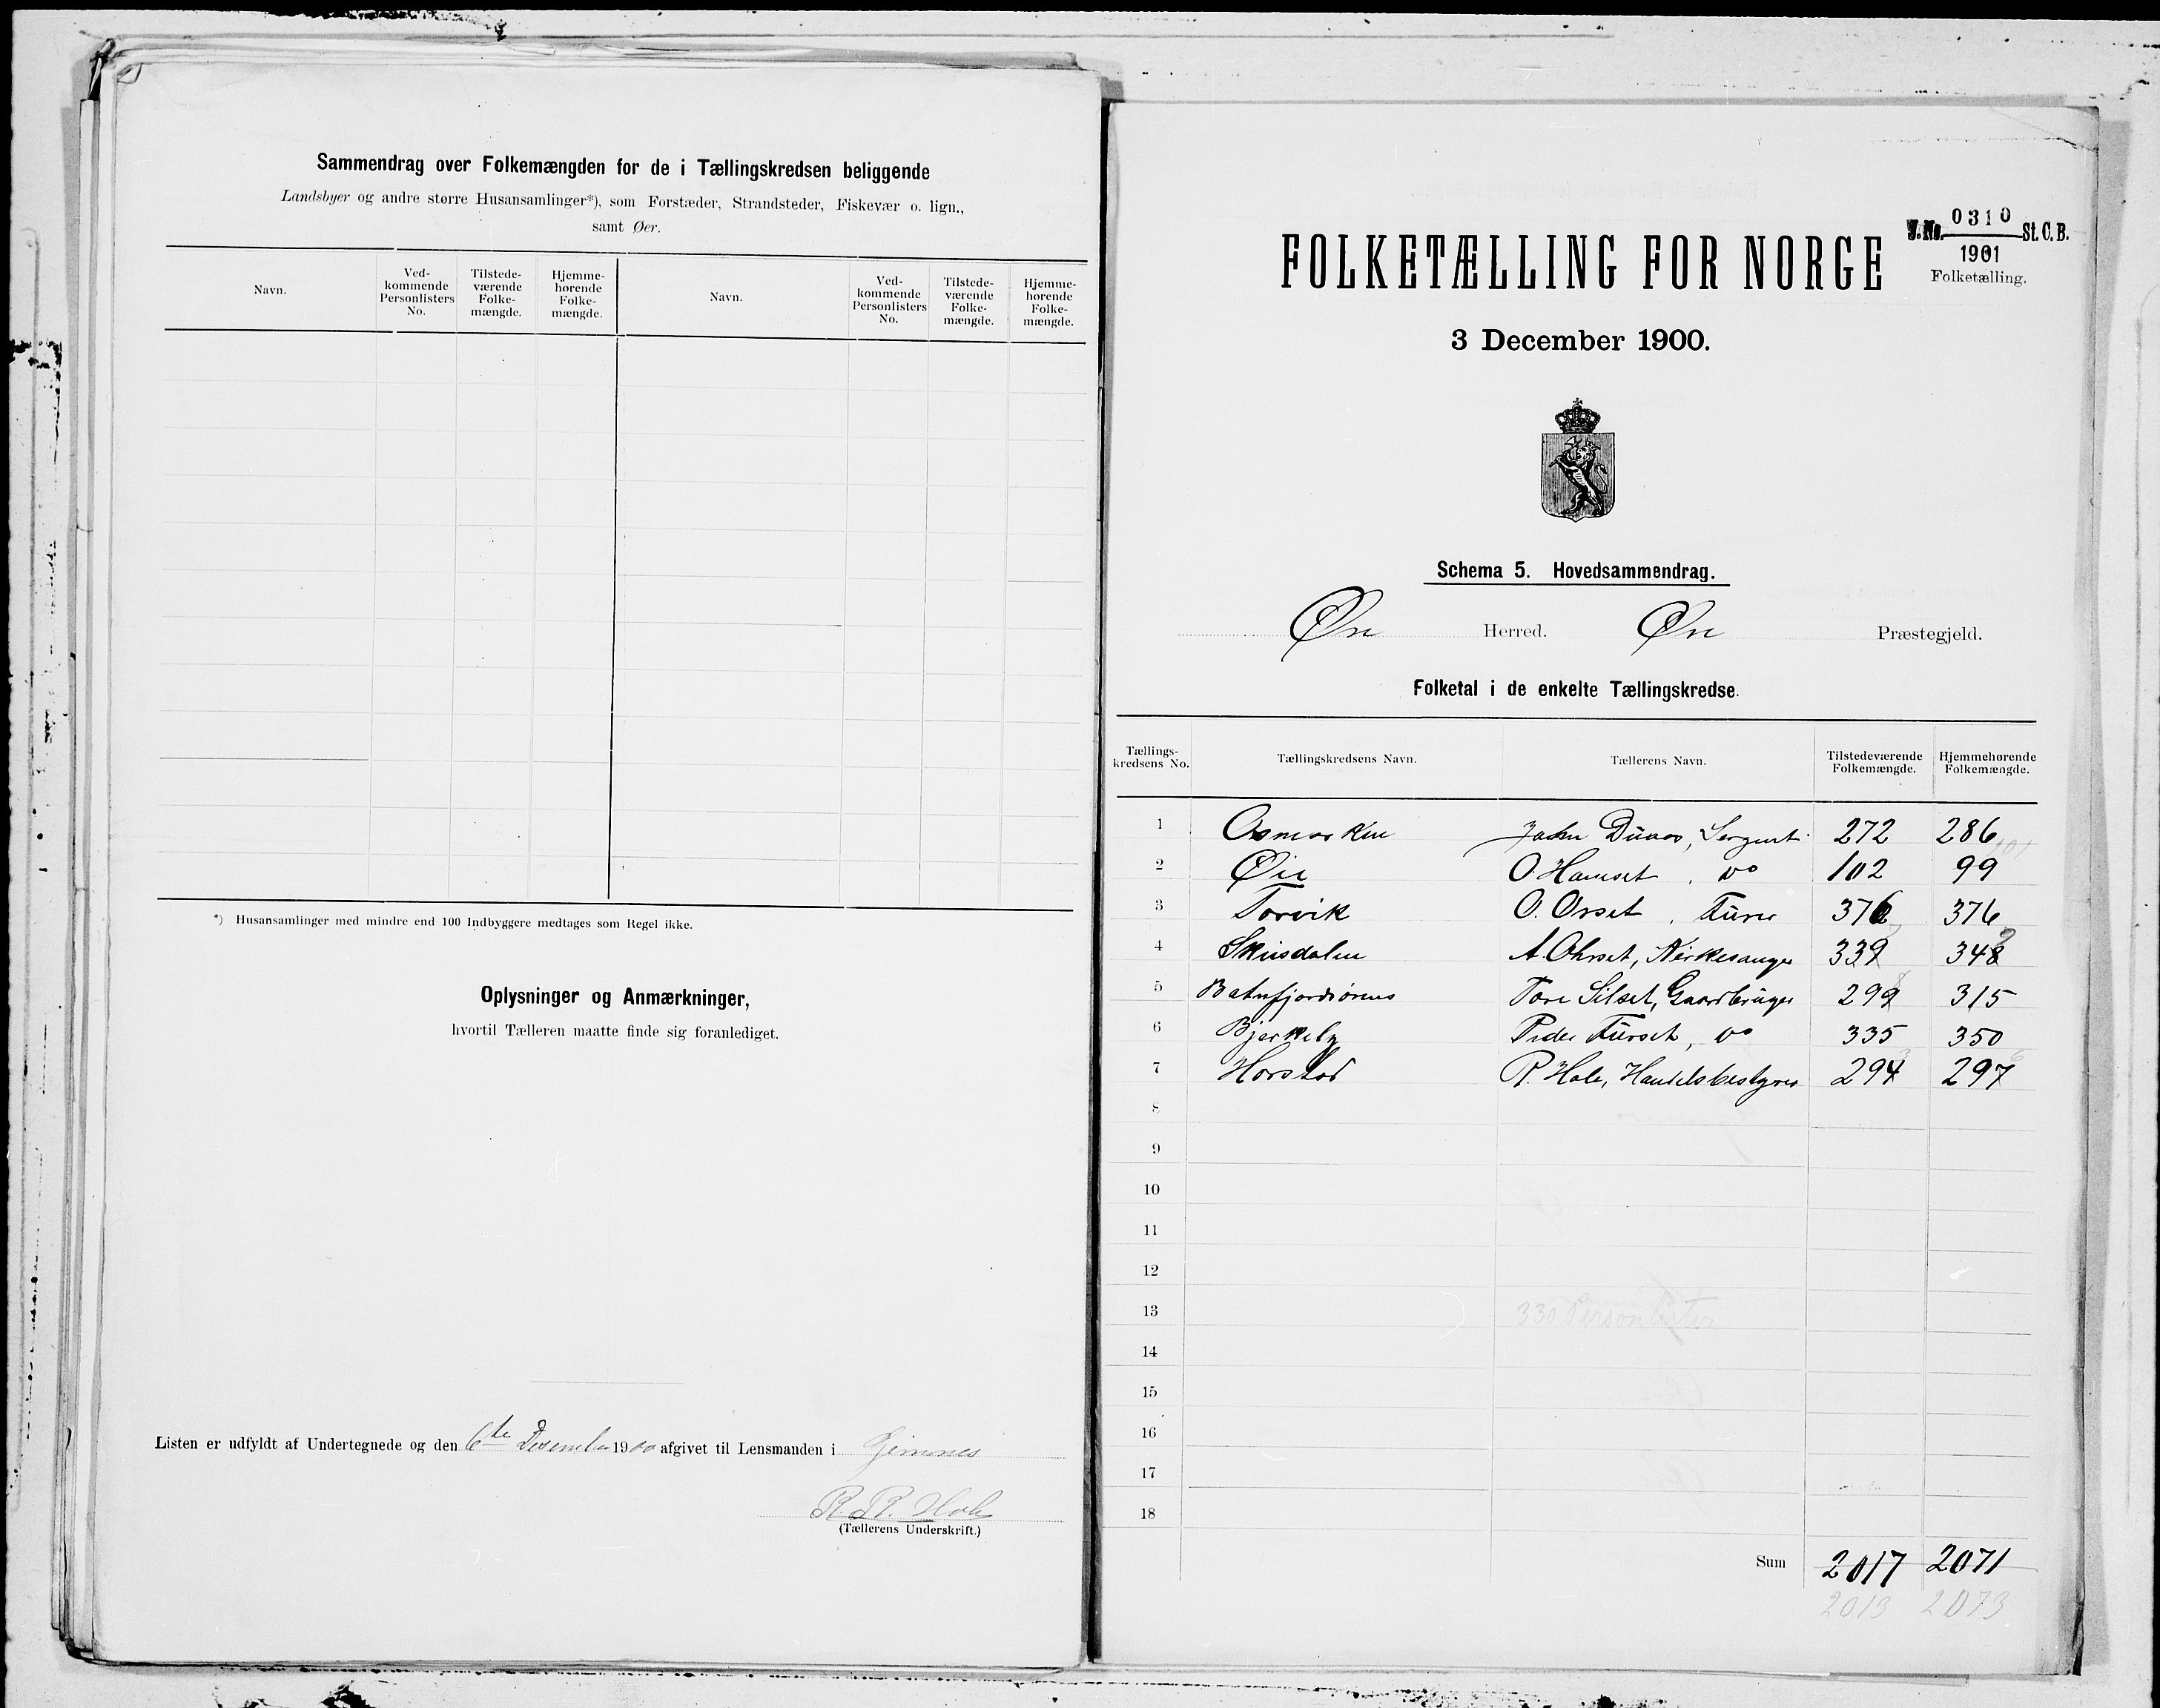 Sammendrag over Folkemængden for de i Tællingskredsen beliggende
Landsbyer og andre større Husansamlinger*), som Forstæder, Strandsteder, Fiskevær o. lign.,
samt Øer.
Navn. Ved-kommende Personlisters No. Tilstede-værende Folke-mængde. Hjemme-hørende Folke-mængde. Navn. Ved-kommende Personlisters No. Tilstede-værende Folke-mængde. Hjemme-hørende Folke-mængde.
*) Husansamlinger med mindre end 100 Indbyggere medtages som Regel ikke.
Oplysninger og Anmærkninger,
hvortil Tælleren maatte finde sig foranlediget.
Listen er udfyldt af Undertegnede og den 6te Desember 1900 afgivet til Lensmanden i Gimnes
R. R. Hole
(Tællerens Underskrift.)
J. No. 0310 St. C. B.
1901
Folketælling.
FOLKETÆLLING FOR NORGE
3 December 1900.
Schema 5. Hovedsammendrag.
Øre Herred. Øre Præstegjeld.
Folketal i de enkelte Tællingskredse.
Tællings-kredsens No. Tællingskredsens Navn. Tællerens Navn. Tilstedeværende Folkemængde. Hjemmehørende Folkemængde.
1 Osmarken John Sergent 272 286
2 Øre O. Hamset, Do 102 99 101
3 Torvik O. Orset, Furer 376 376
4 Skeisdalen A. Ohrset, Kirkesanger 339 348
5 Batnfjordsørens Tore Silset, Gaardbruger 299 315
6 Bjerkely Peder Furset, Do 335 350
7 Horstad R. Hole, Handelsbestyrer 294 297
8
9
10
11
12
13 330 Personlister
14
15
16
17
18
Sum 2017 2071
2013 2073